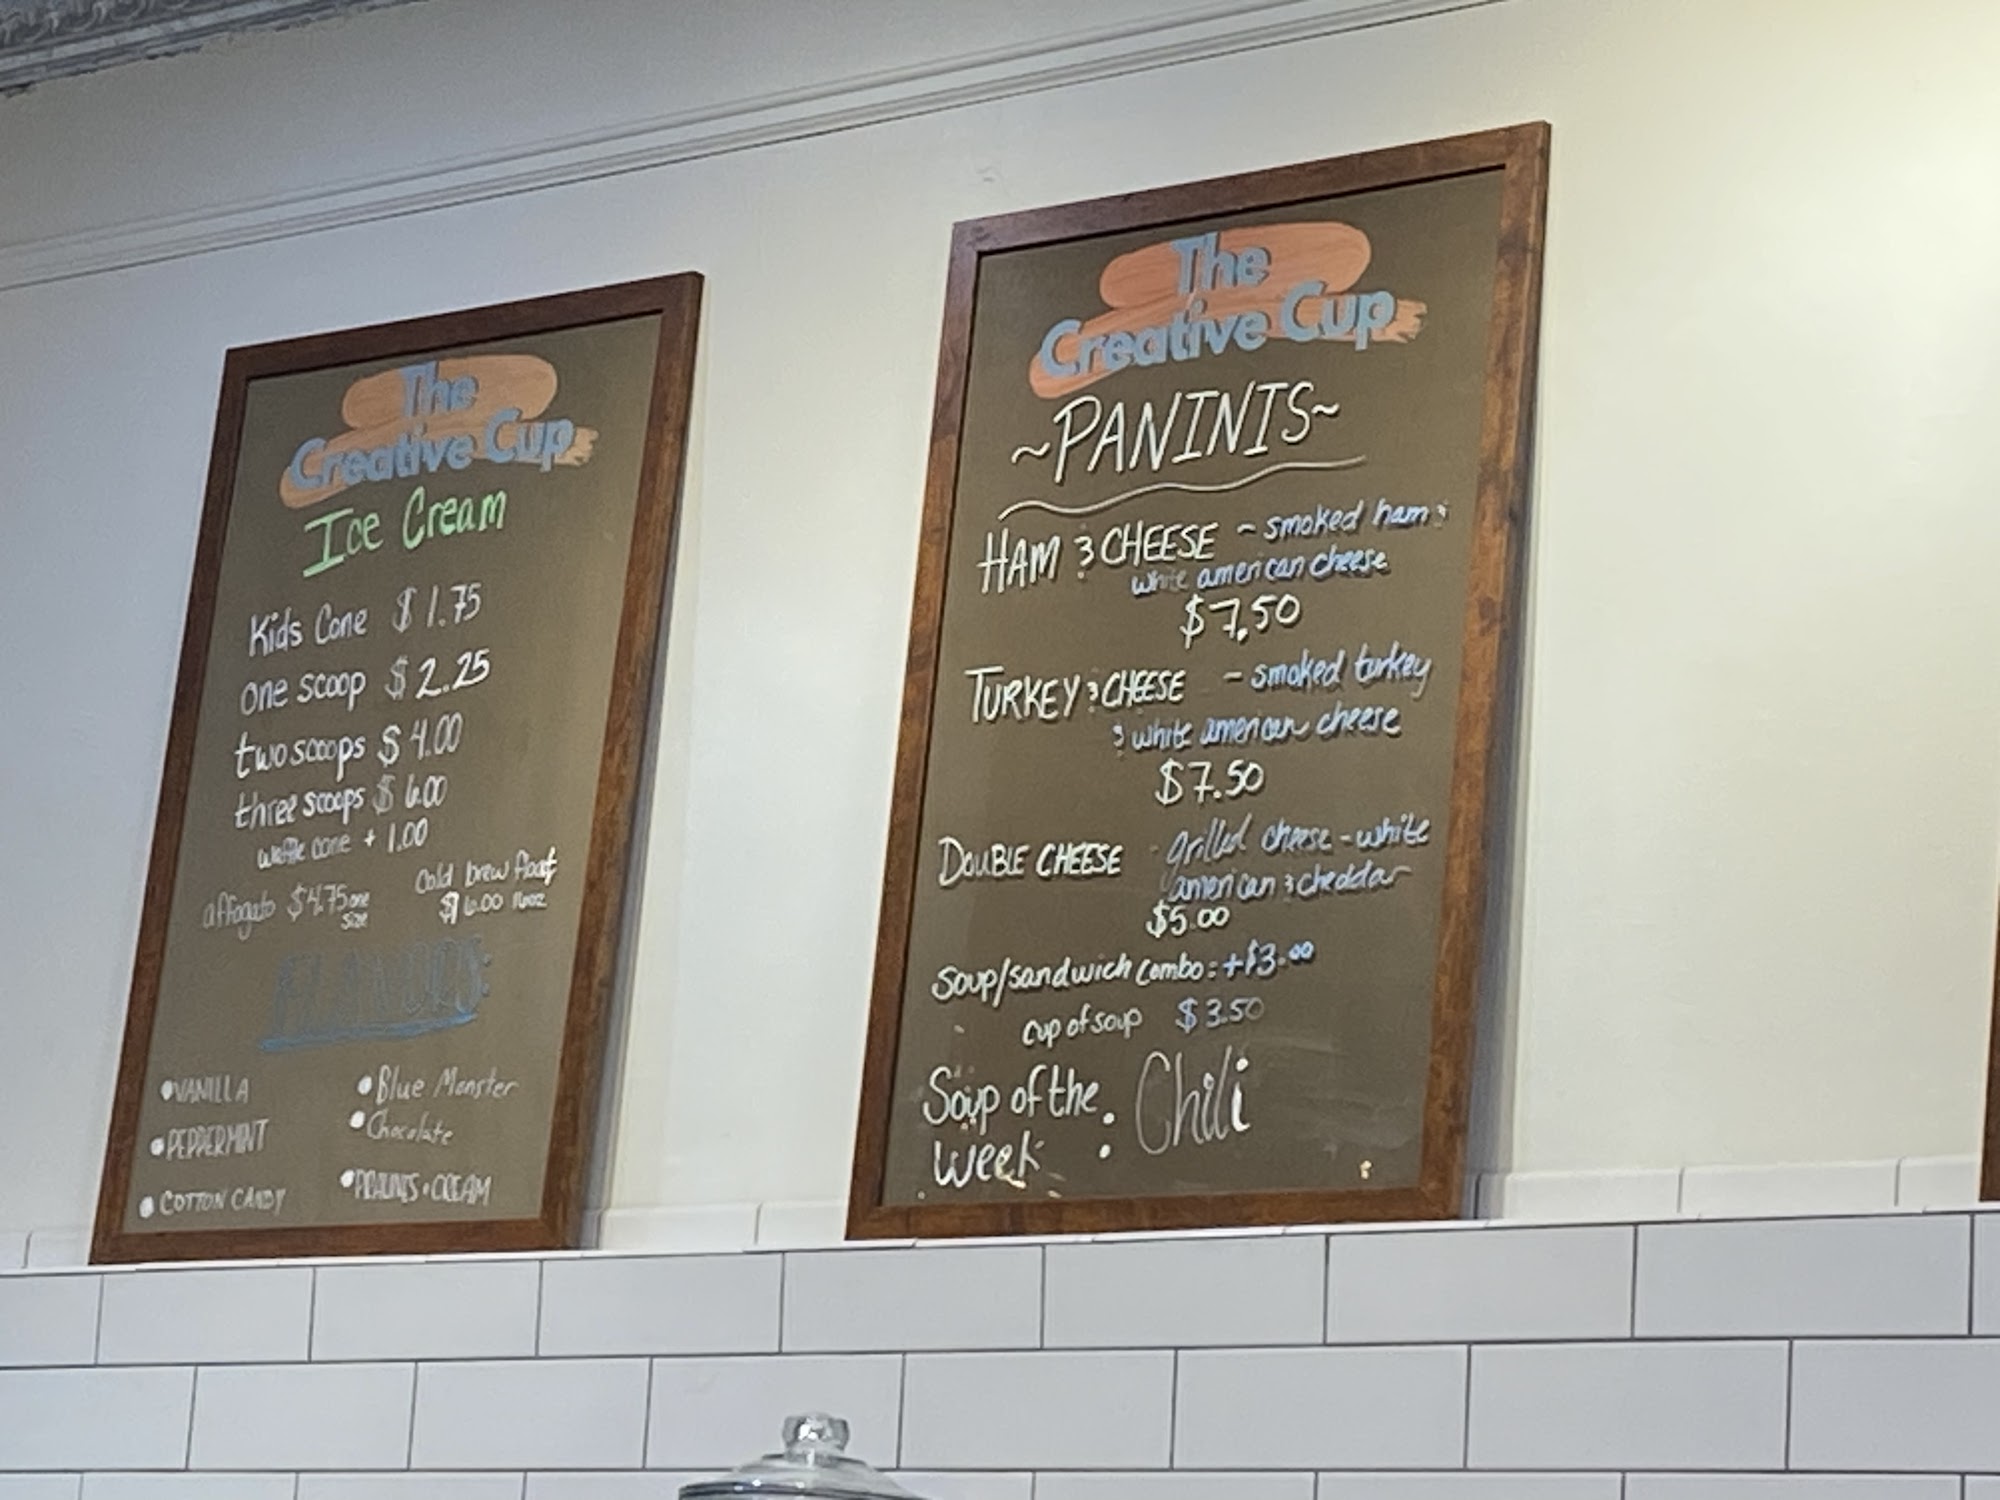 The
Creative Cup
Ice Cream
Kids Cone $1.75
one scoop $2.25
two scoops $4.00
three scoops $6.00
waffle cone + 1.00
affogato $4.75 one size
Cold brew float
$6.00 16oz
FLAVORS:
• VANILLA
• PEPPERMINT
• COTTON CANDY
• Blue Monster
• Chocolate
• PRALINES • CREAM
The
Creative Cup
~PANINIS~
HAM & CHEESE ~ smoked ham &
white american cheese
$7.50
TURKEY & CHEESE - smoked turkey
& white american cheese
$7.50
DOUBLE CHEESE - grilled cheese - white
american & cheddar
$5.00
Soup/sandwich combo: +$3.00
cup of soup $3.50
Soup of the
week : Chili